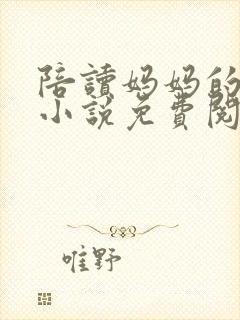 陪讀妈妈的
小說免費閱
唯野